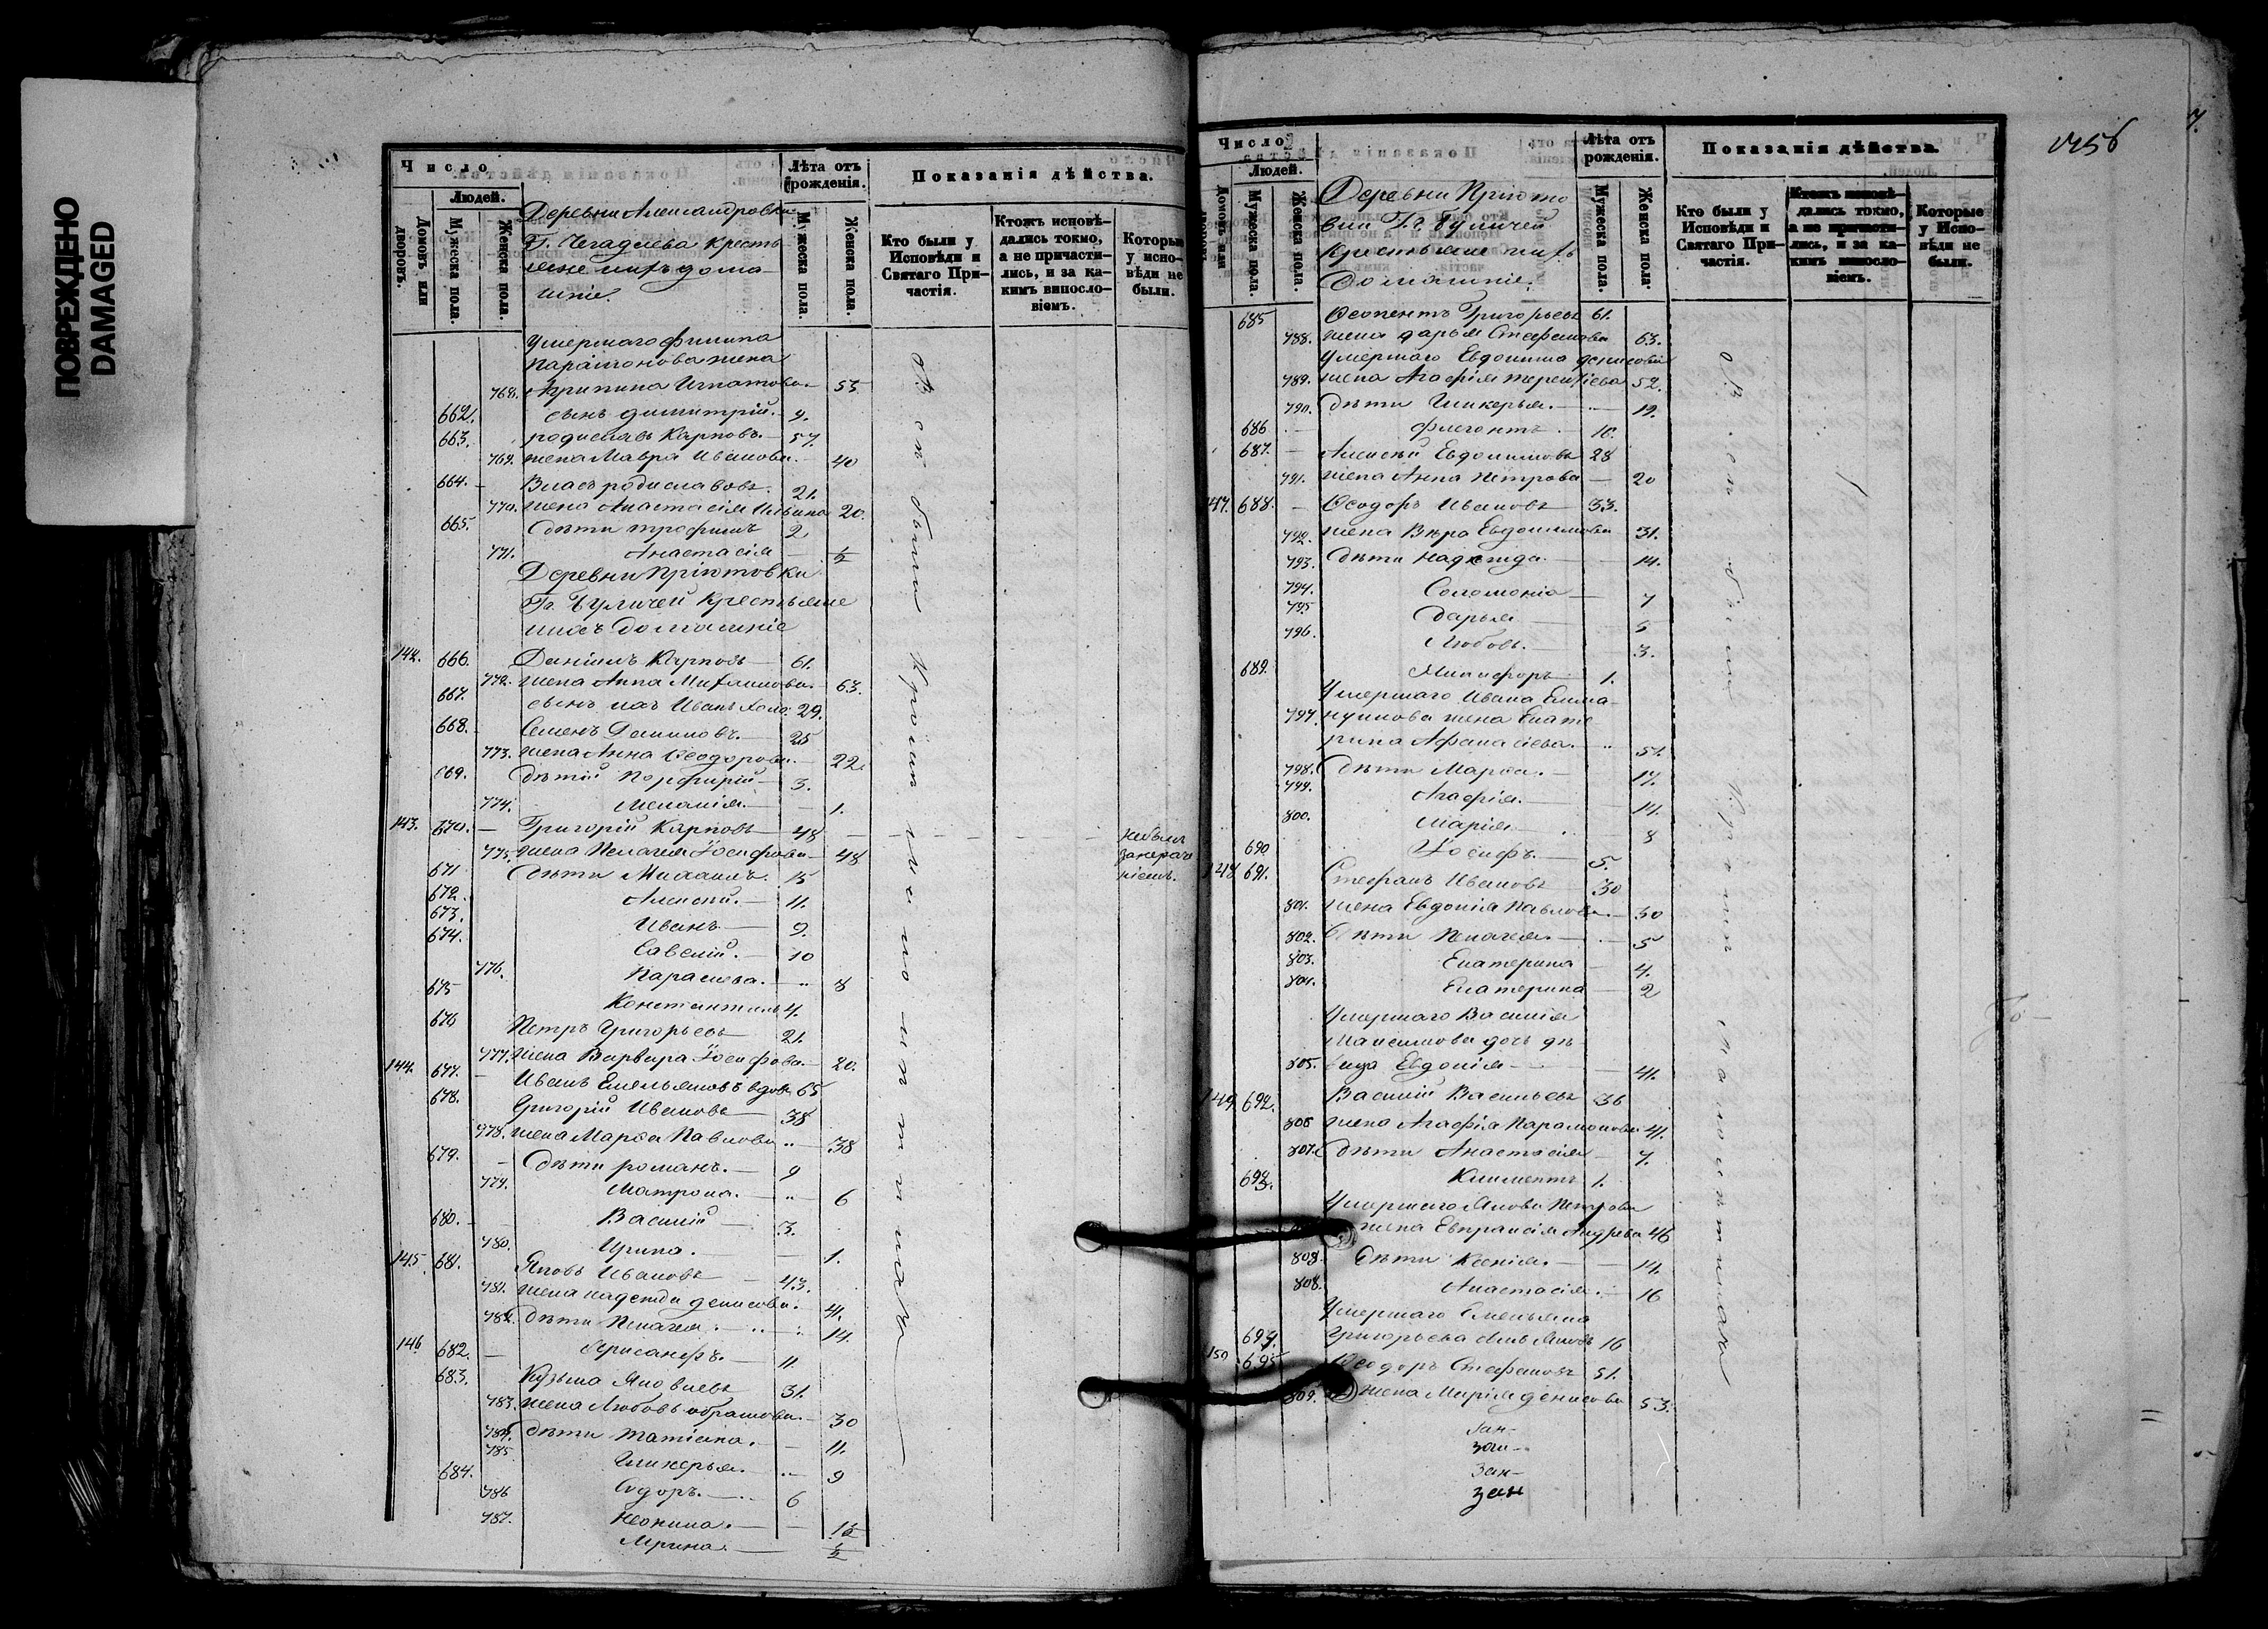 ПОВРЕЖДЕНО
DAMAGED
Число
Людей.
Домовъ или дворовъ.
Мужеска пола.
Женска пола.
Деревни Александровки
Г. Чегадаева кресть
яне ихъ дома
шніе.
Лѣта отъ рожденія.
Мужеска пола.
Женска пола.
Показанія дѣйства.
Кто были у Исповѣди и Святаго Причастія.
Ктожъ исповѣдались токмо, а не причастились, и за какимъ винословіемъ.
Которые у исповѣди не были.
умершаго Филипа
Парамонова жена
768. Агрипина Игнатова 53
662. сынъ Димитрій. 9.
663. родиславъ Карповъ. 57.
769. жена Мавра Иванова. 40
664. Власъ родиславовъ. 21.
770. жена Анастасія Ильина 20.
665. дѣти трофимъ 2
771. Анастасія ½
Деревни Пріютовки
Гг. Буличей крестьяне
ихъ домашніе
142. 666. Даніилъ Карповъ 61.
772. жена Анна Михаилова. 63.
667. сынъ ихъ Иванъ холо: 29.
668. Семенъ Даниловъ. 25
773. жена Анна Ѳеодорова. 22.
669. дѣти Порфирій 3.
774. Меланія. 1.
143. 670. Григорій Карповъ 48
небылъ
775. жена Пелагея Іосифова 48
671 дѣти Михаилъ. 15
672. Алексій. 11.
673. Иванъ 9.
674. Савелій. 10
776. Параскева. 8
675 Константинъ 4.
676 Петръ Григорьевъ 21.
777. жена Варвара Іосифова. 20.
144. 677. Иванъ Емельяновъ вдов 65
678. Григорій Ивановъ 38
778. жена Марѳа Павлова 38
679. дѣти романъ. 9
779. Матрона. 6
680. Василій 3.
780. Ирина. 1.
145 681. Яковъ Ивановъ 43.
781. жена надежда денисова. 41.
782. дѣти Пелагея. 14.
146 682. Хрисанфъ. 11.
683. Кузьма Яковлевъ 31.
783. жена Любовь абрамова. 30
784. дѣти татіана. 11.
785. Гликерья. 9
684. Сидоръ. 6
786 Неонила. 1½
787. Ирина. ½
въ сп были Кромѣ
1456
Число
Людей.
Домовъ или
Мужеска пола.
Женска пола.
Деревни Пріюто
вки Гг. Буличей
крестьяне ихъ
домашніе.
Лѣта отъ рожденія.
Мужеска пола.
Женска пола.
Показанія дѣйства.
Кто были у Исповѣди и Святаго Причастія.
Ктожъ исповѣдались токмо, а не причастились, и за какимъ винословіемъ.
Которые у Исповѣди не были.
685 Ѳеопентъ Григорьевъ 61.
788. жена дарья Стефанова 63.
умершаго Евдокима денисова
789. жена Агафія терентіева 52.
790. дѣти Гликерья. 19.
686 Флегонтъ. 10.
687. Алексѣй Евдокимовъ 28
791. жена Анна Петрова 20
147. 688. Ѳеодоръ Ивановъ 33.
792. жена Вѣра Евдокимова 31.
793. дѣти надежда. 14.
794. Соломонія 7
795 Дарья 5
796. Любовь. 3.
689. Никифоръ 1.
Умершаго Ивана Емма
797. нуилова жена Екате
рина Афанасіева. 51.
798. дѣти Марѳа. 17.
799. Агафія. 14.
800. Марія 8
690 Іосифъ. 5.
148 691. Стефанъ Ивановъ 30
801. жена Евдокія Павлова. 30
802. дѣти Пелагея. 5
803. Екатерина 4.
804. Екатерина 2
Умершаго Василія
Максимова дочь дѣ
805. вица Евдокія 41.
149 692. Василій Васильевъ 36
806 жена Агафія Парамонова 41.
807. дѣти Анастасія 7.
693. Климентъ 1.
Умершаго Якова Петрова
жена Евпраксія Андреева 46
808. дѣти Ксенія. 14.
808. Анастасія. 16
Умершаго Емельяна
694. Григорьева сынъ Яковъ 16
150 695 Ѳеодоръ Стефановъ 51.
809. жена Марія денисова 53.